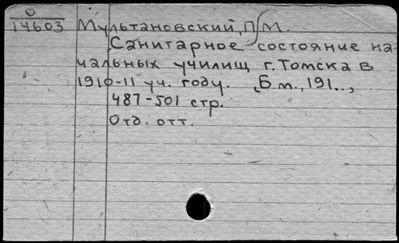 О
14603 Мультановский, П. М.
Санитарное состояние на-
чальных училищ г. Томска в
1910-11 уч. году. Б.м., 191..,
487-501 стр.
Отд. отт.